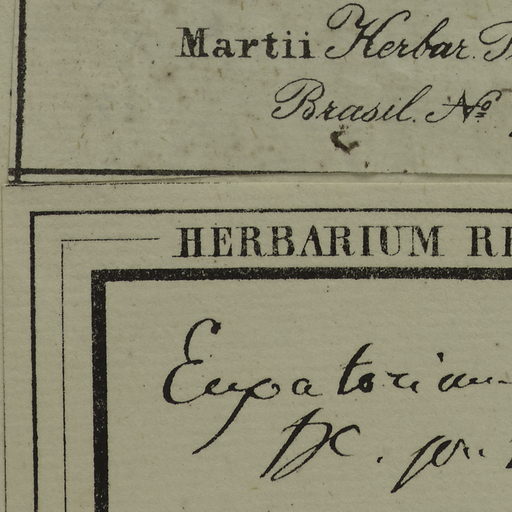 Martii Herbar.
Brasil. No
HERBARIUM
Eupatorium
DC. pr.